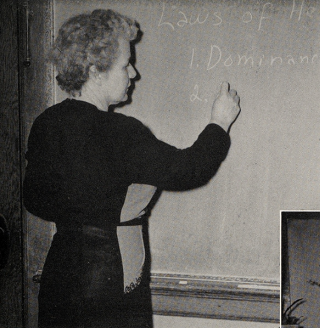 Laws of He
1. Dominanc
2.